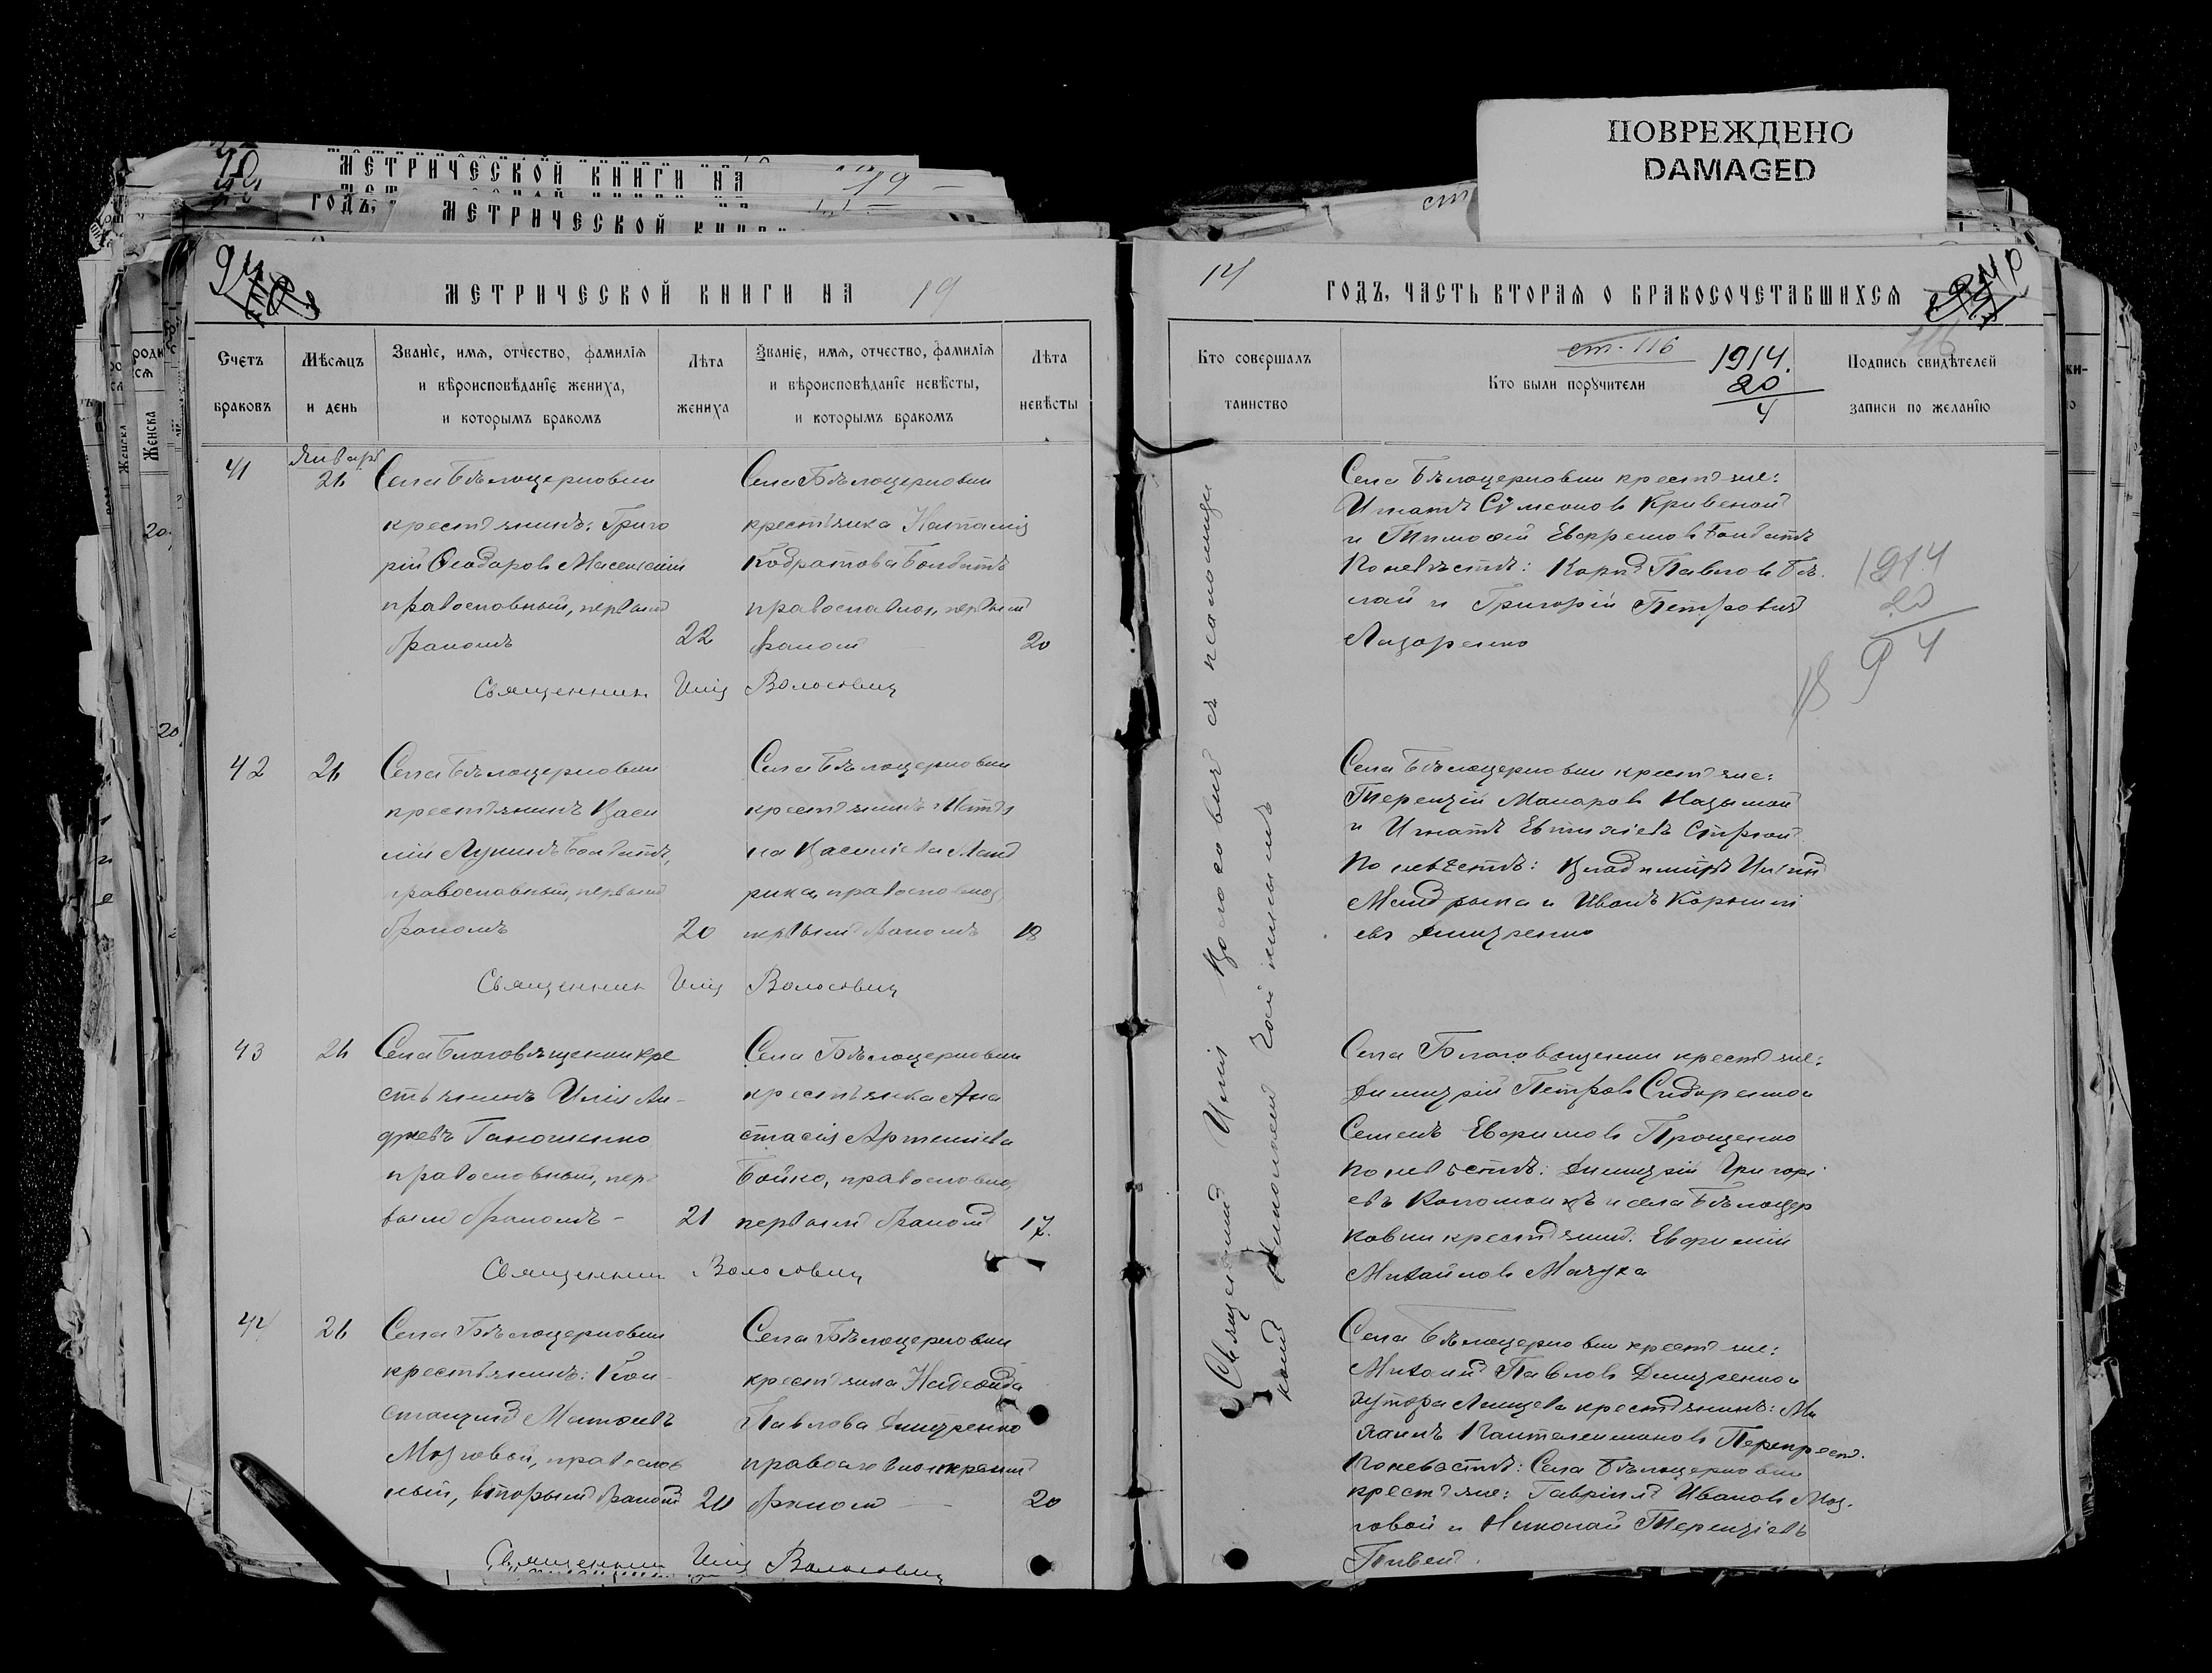 ПОВРЕЖДЕНО
DAMAGED
МЕТРИЧЕСКОЙ КНИГИ НА 19
ГОДЪ,
МЕТРИЧЕСКОЙ КНИГИ
МЕТРИЧЕСКОЙ КНИГИ НА 19
14 ГОДЪ, ЧАСТЬ ВТОРАЯ О БРАКОСОЧЕТАВШИХСЯ
Счетъ браковъ
Мѣсяцъ и день
Званіе, имя, отчество, фамилія
и вѣроисповѣданіе жениха,
и которымъ бракомъ
Лѣта жениха
Званіе, имя, отчество, фамилія
и вѣроисповѣданіе невѣсты,
и которымъ бракомъ
Лѣта невѣсты
Кто совершалъ
таинство
ст. 116
Кто были поручители
1914.
20
4
Подпись свидѣтелей
записи по желанію
116
41
Январь
26
Села Бѣлоцерковки
крестьянинъ: Григо
рій Ѳеодоровъ
православный, первымъ
бракомъ
22
Села Бѣлоцерковки
крестьянка Наталія
Кодратова Болбатъ
православная, первымъ
бракомъ
20
Священникъ Илія Волосовичъ
Села Бѣлоцерковки крестьяне:
Игнатъ Сѵмеоновъ Кривеной
и Тимоѳей Евфремовъ Болбатъ
По невѣстѣ: Карпъ Павловъ Бѣ
лай и Григорій Петровичъ
Лазоренко
1914
20
4
42
26
Села Бѣлоцерковки
крестьянинъ Васи
лій Лукинъ Болбатъ,
православный, первымъ
бракомъ
20
Села Бѣлоцерковки
на Василіева Манд
рыка, православная,
первымъ бракомъ
18
Священникъ Илія Волосовичъ
Села Бѣлоцерковки крестьяне:
Терентій Макаровъ
и Игнатъ Евтихіевъ
По невѣстѣ: Владиміръ
Мандрыка и Иванъ Корнилі
евъ Дмитренко
43
26
Села Благовѣщенки кре
стьянинъ Илія Ан-
дреевъ Ганошенко
православный, пер-
вымъ бракомъ -
21
Села Бѣлоцерковки
крестьянка Ана
стасія Артеміева
Бойко, православная,
первымъ бракомъ
17.
Священникъ Волосовичъ
Села Благовѣщенки крестьяне:
Димитрій Петровъ Сидоренко и
Семенъ Евфимовъ Прощенко
По невѣстѣ: Димитрій Григорі
евъ Коломоецъ и села Бѣлоцер
ковки крестьянинъ: Евфимій
Михайловъ Мачуха
44
26
Села Бѣлоцерковки
крестьянинъ: Кон-
стантинъ Матѳеевъ
Мозговой, православ
ный, вторымъ бракомъ
20
Села Бѣлоцерковки
крестьянка Надежда
Павлова Дмитренко
православная первымъ
бракомъ
20
Священникъ Илія Волосовичъ
Села Бѣлоцерковки крестьяне:
Михаилъ Павловъ Дмитренко и
хутора крестьянинъ: Ми
хаилъ Пантелеимоновъ
По невѣстѣ: Села Бѣлоцерковки
крестьяне: Гавріилъ Ивановъ Моз-
говой и Николай Терентіевъ
Пивень.
Священникъ Илія Волосовичъ съ псаломщи
комъ